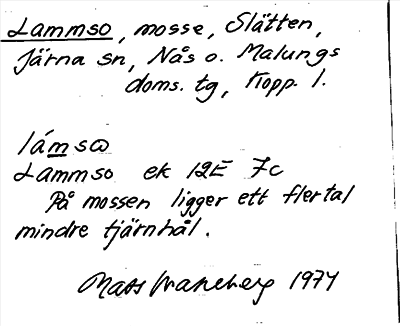 Lammso, mosse, Slätten,
Järna sn, Nås o. Malungs
doms. tg, Kopp. l.
lámsω
Lammso ek 12E 7c
På mossen ligger ett flertal
mindre tjärnhål.
Mats 1974